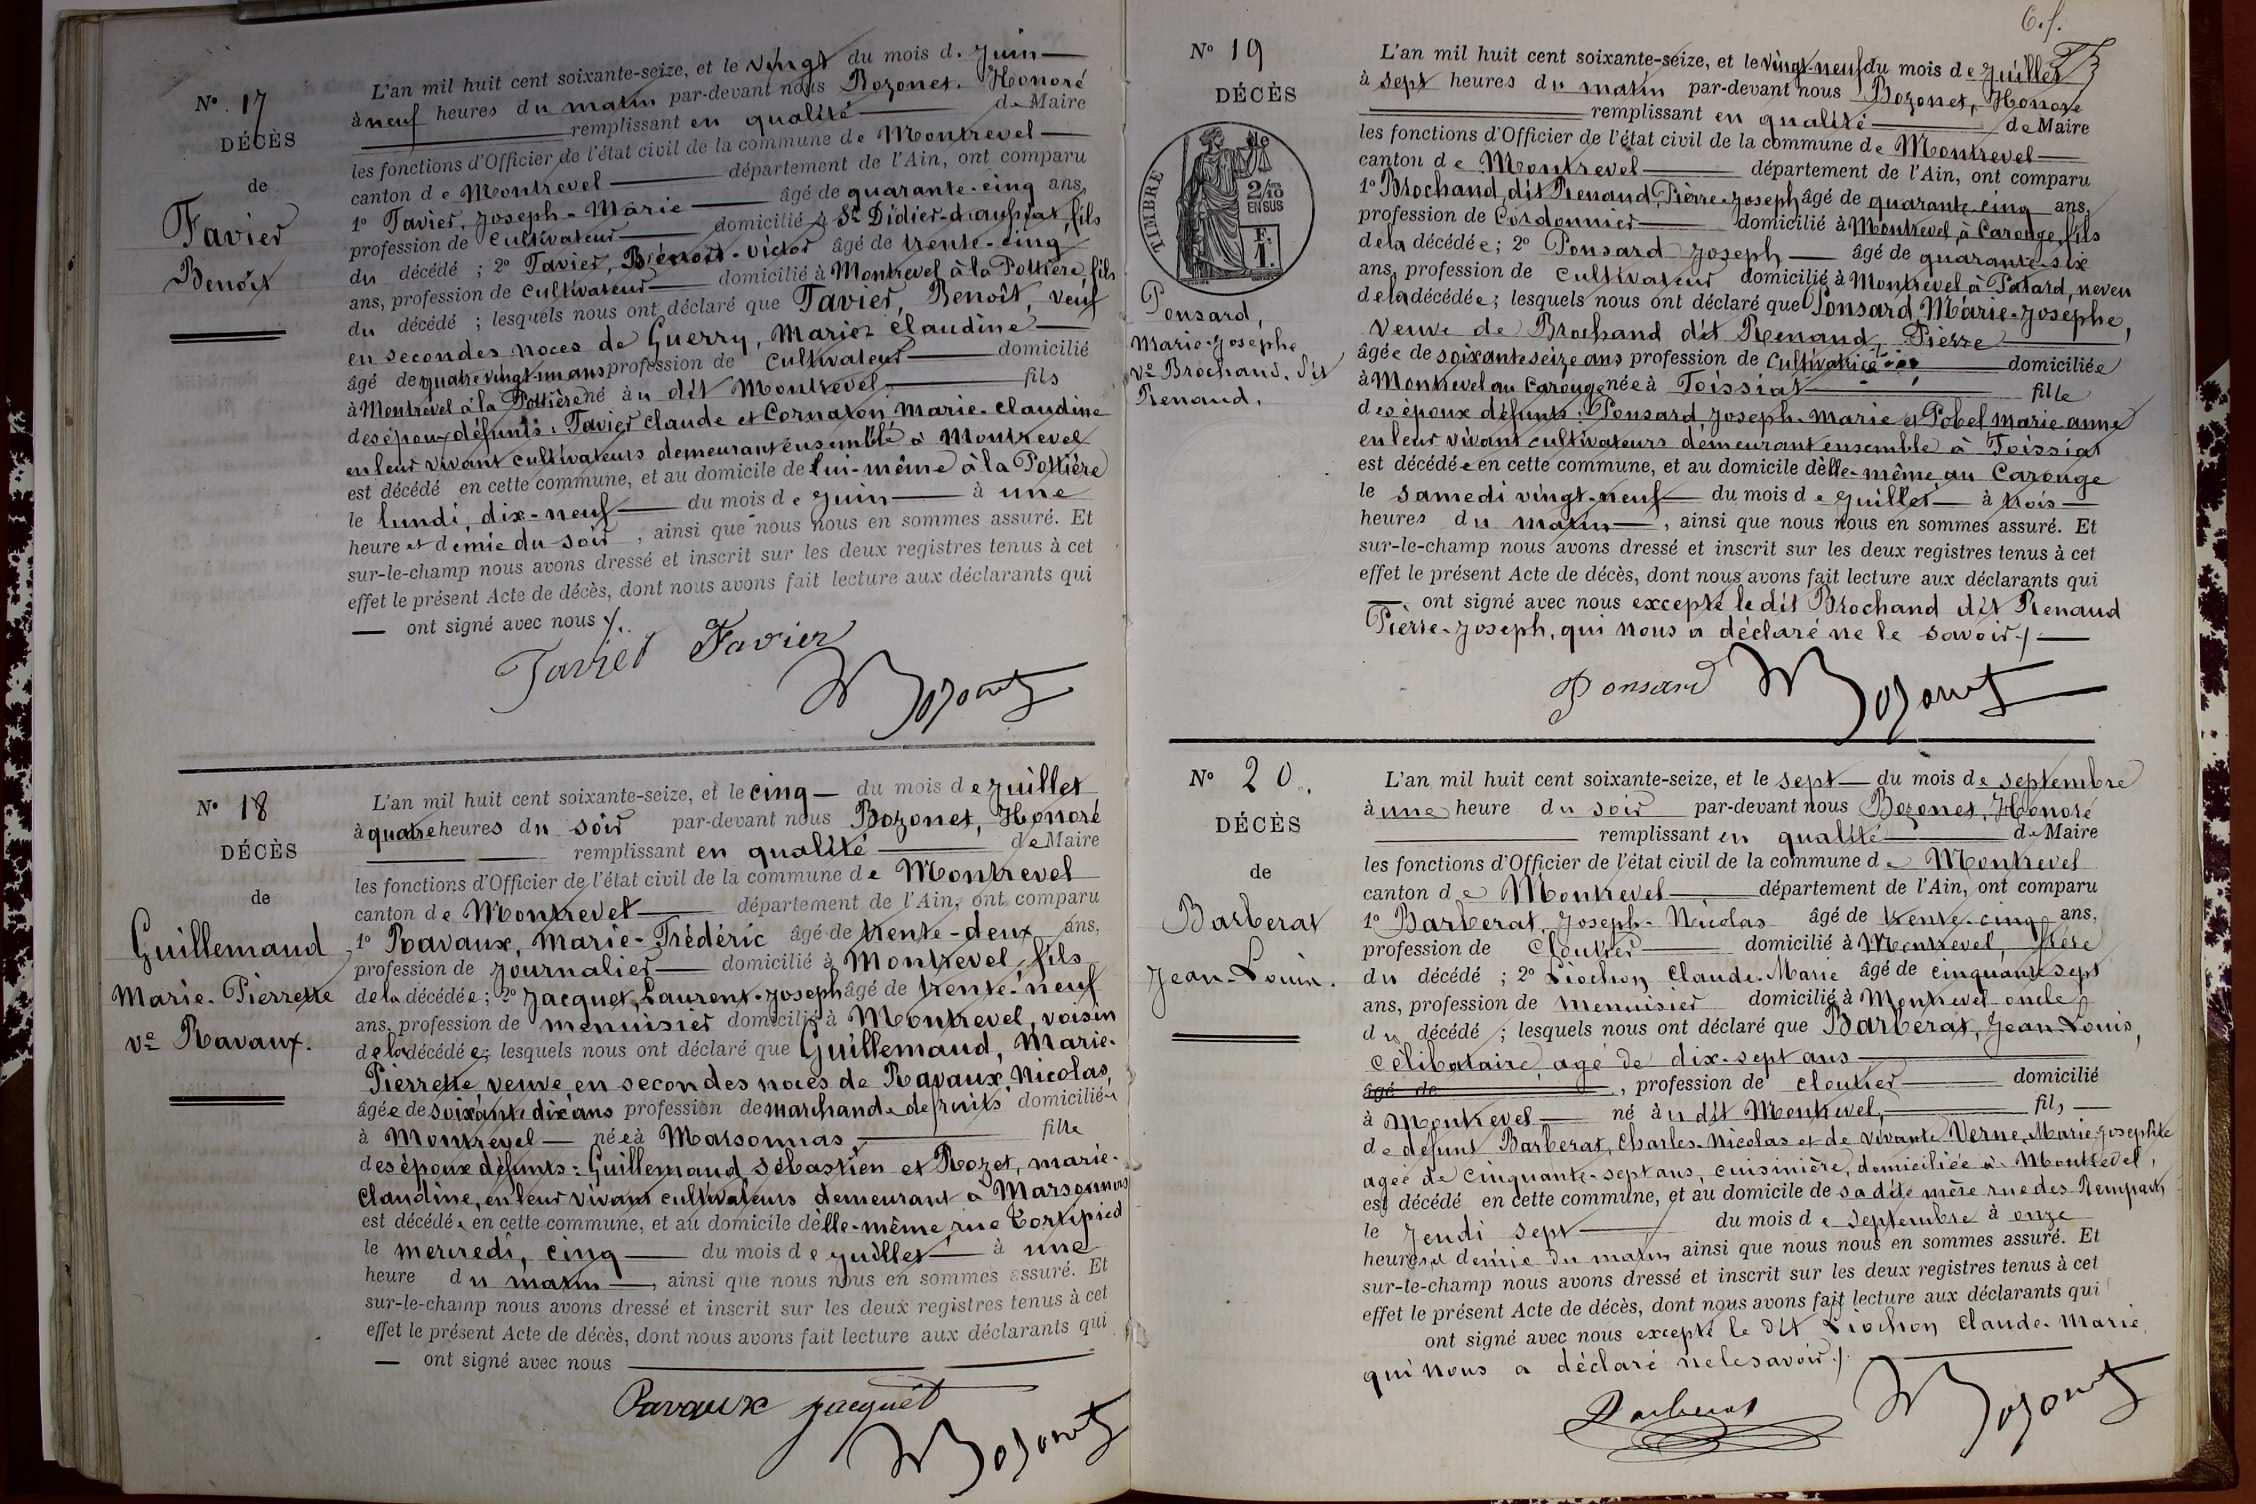 N° 17
DÉCÈS
de
Favier
Benoît
L'an mil huit cent soixante-seize, et le vingt du mois d. Juin
à neuf heures du matin par-devant nous Bozonet, Honoré
remplissant en qualité de Maire
les fonctions d'Officier de l'état civil de la commune de Montrevel
canton de Montrevel département de l'Ain, ont comparu
1° Favier, Joseph-Marie âgé de quarante-cinq ans,
profession de Cultivateur domicilié à St Didier-d'aussiat, fils
du décédé ; 2° Favier, Benoît-Victor âgé de trente-cinq
ans, profession de cultivateur domicilié à Montrevel à la Pottière, fils
du décédé ; lesquels nous ont déclaré que Favier, Benoît, veuf
en secondes noces de Guerry, Marie Claudine
âgé de quatre vingt-un ans profession de cultivateur domicilié
à Montrevel à la Pottière né à u dit Montrevel fils
des époux défunts : Favier Claude et Cornaton Marie-Claudine
en leur vivant cultivateurs demeurant ensemble à Montrevel
est décédé en cette commune, et au domicile de lui-même à la Pottière
le lundi, dix-neuf du mois de Juin à une
heure et demie du soir, ainsi que nous nous en sommes assuré. Et
sur-le-champ nous avons dressé et inscrit sur les deux registres tenus à cet
effet le présent Acte de décès, dont nous avons fait lecture aux déclarants qui
ont signé avec nous ./.
Favier Favier
Bozonet
N° 18
DÉCÈS
de
Guillemaud
Marie-Pierrette
ve Ravaux.
L'an mil huit cent soixante-seize, et le cinq du mois de Juillet
à quatre heures du soir par-devant nous Bozonet, Honoré
remplissant en qualité de Maire
les fonctions d'Officier de l'état civil de la commune de Montrevel
canton de Montrevel département de l'Ain, ont comparu
1° Ravaux, Marie-Frédéric âgé de trente-deux ans,
profession de Journalier domicilié à Montrevel, fils
de la décédée ; 2° Jacquet, Laurent-Joseph âgé de trente-neuf
ans, profession de menuisier domicilié à Montrevel, voisin
de la décédée ; lesquels nous ont déclaré que Guillemaud, Marie-
Pierrette veuve en secondes noces de Ravaux, Nicolas,
âgée de soixante dix ans profession de marchande de fruits domiciliée
à Montrevel née à Marsonnas, fille
des époux défunts : Guillemaud Sébastien et Rozet, marie-
Claudine, en leur vivant cultivateurs demeurant à Marsonnas
est décédée en cette commune, et au domicile d'elle-même, rue Tortipied
le mercredi, cinq du mois de Juillet à une
heure du matin, ainsi que nous nous en sommes assuré. Et
sur-le-champ nous avons dressé et inscrit sur les deux registres tenus à cet
effet le présent Acte de décès, dont nous avons fait lecture aux déclarants qui
ont signé avec nous
Ravaux Jacquet
Bozonet
6. f.
N° 19
DÉCÈS
TIMBRE
2/10
EN SUS
F.
1.
Ponsard,
Marie-Josephe
ve Brochand, dit
Renaud.
L'an mil huit cent soixante-seize, et le vingt-neuf du mois de Juillet
à sept heures du matin par-devant nous Bozonet, Honoré
remplissant en qualité de Maire
les fonctions d'Officier de l'état civil de la commune de Montrevel
canton de Montrevel département de l'Ain, ont comparu
1° Brochand, dit Renaud, Pierre-Joseph âgé de quarante cinq ans,
profession de Cordonnier domicilié à Montrevel, à Carouge, fils
de la décédée ; 2° Ponsard Joseph âgé de quarante-six
ans, profession de cultivateur domicilié à Montrevel à Patard, neveu
de la décédée ; lesquels nous ont déclaré que Ponsard, Marie-Josephe,
veuve de Brochand dit Renaud, Pierre
âgée de soixante seize ans profession de cultivatrice domiciliée
à Montrevel au Carouge née à Foissiat fille
des époux défunts : Ponsard Joseph-Marie et Pobel Marie-anne
en leur vivant cultivateurs demeurant ensemble à Foissiat
est décédée en cette commune, et au domicile d'elle-même au Carouge
le samedi vingt-neuf du mois de Juillet à trois
heures du matin, ainsi que nous nous en sommes assuré. Et
sur-le-champ nous avons dressé et inscrit sur les deux registres tenus à cet
effet le présent Acte de décès, dont nous avons fait lecture aux déclarants qui
ont signé avec nous excepté le dit Brochand dit Renaud
Pierre-Joseph, qui nous a déclaré ne le savoir ./.
Ponsard Bozonet
N° 20.
DÉCÈS
de
Barberat
Jean-Louis.
L'an mil huit cent soixante-seize, et le sept du mois de septembre
à une heure du soir par-devant nous Bozonet, Honoré
remplissant en qualité de Maire
les fonctions d'Officier de l'état civil de la commune de Montrevel
canton de Montrevel département de l'Ain, ont comparu
1° Barberat, Joseph-Nicolas âgé de trente-cinq ans,
profession de Cloutier domicilié à Montrevel, frère
du décédé ; 2° Liochon Claude-Marie âgé de cinquante sept
ans, profession de menuisier domicilié à Montrevel oncle
du décédé ; lesquels nous ont déclaré que Barberat, Jean-Louis,
célibataire, agé de dix-sept ans
âgé de, profession de cloutier domicilié
à Montrevel né à u dit Montrevel, fils
de défunt Barberat, Charles-Nicolas et de vivante Verne, Marie-Josephte
agée de cinquante-sept ans, cuisinière, domiciliée à Montrevel,
est décédé en cette commune, et au domicile de sa dite mère rue des Remparts
le Jeudi sept du mois de septembre à onze
heures et demie du matin ainsi que nous nous en sommes assuré. Et
sur-le-champ nous avons dressé et inscrit sur les deux registres tenus à cet
effet le présent Acte de décès, dont nous avons fait lecture aux déclarants qui
ont signé avec nous excepté le dit Liochon Claude-Marie
qui nous a déclaré ne le savoir ./.
Barberat Bozonet